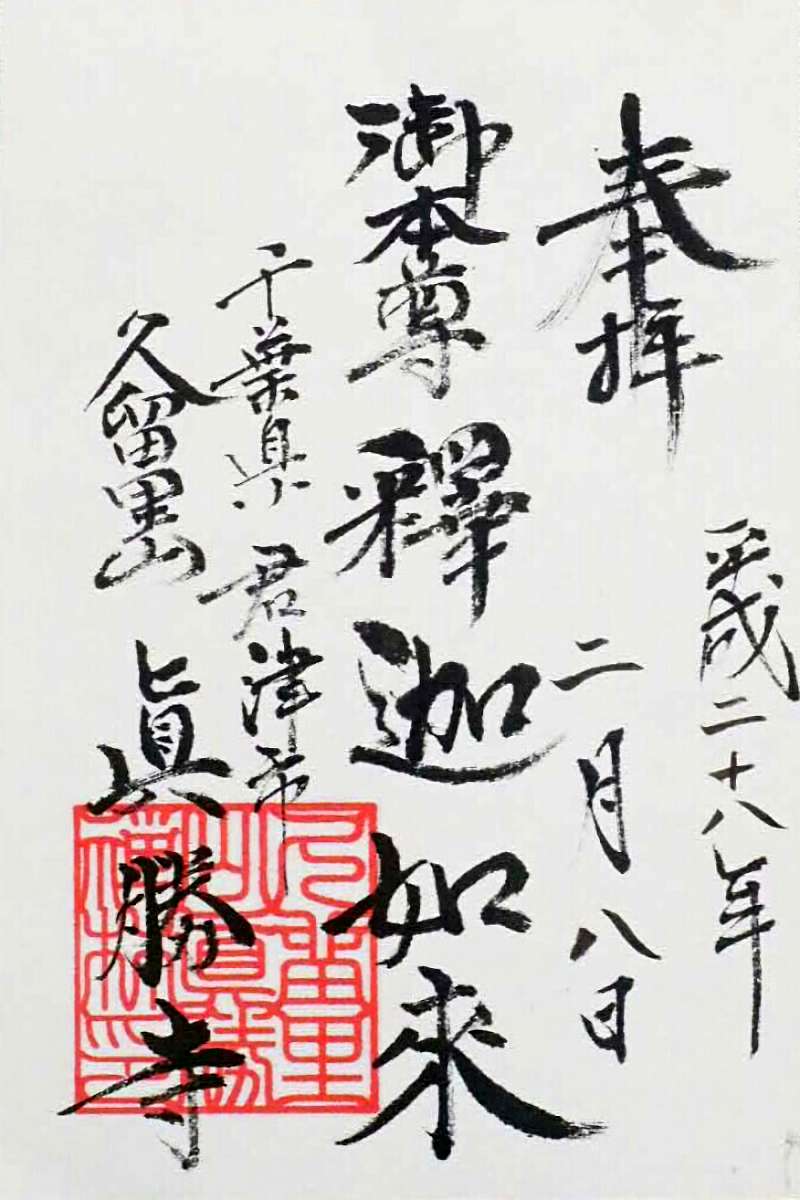 奉拝
平成二十八年
二月八日
御本尊 釋迦如來
千葉県 君津市
久留里山 眞勝寺